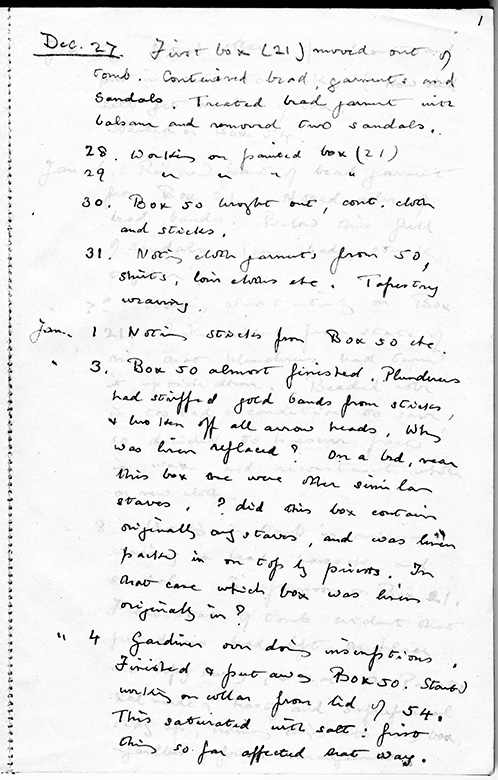 1
Dec. 27. First box (21) moved out of
tomb. Contained bead, garments and
Sandals. Treated bead garment with
balsam and removed two sandals.
28. Working on painted box (21)
29 " " " "
30. Box 50 brought out, cont. cloth
and sticks.
31. Noting cloth garments from 50,
shirts, loin cloths etc. Tapestry
weaving.
Jan. 1 Noting sticks from Box 50 etc.
" 3. Box 50 almost finished. Plunderers
had stripped gold bands from sticks,
& broken off all arrow heads. Why
was linen replaced? On a bed, near
this box were other similar
staves. ? did this box contain
originally only staves, and was linen
packed in on top by priests. In
that case which box was linen
originally in?
" 4 Gardiner over doing inscriptions.
Finished & put away Box 50. Started
working on collar from lid of 54.
This saturated with salt: first
thing so far affected that way.